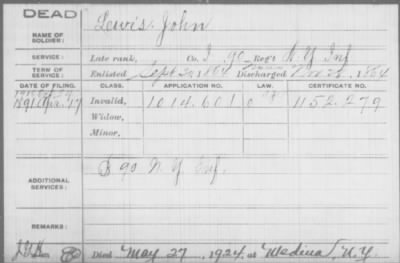 DEAD
NAME OF SOLDIER: Lewis, John
SERVICE: Late rank, Co. I, 90 Reg't N.Y. Inf
TERM OF SERVICE: Enlisted Sept 20, 1864 Discharged 1864
DATE OF FILING. CLASS. APPLICATION NO. LAW. CERTIFICATE NO.
1891 Apr. 17 Invalid, 1014.601 1152.279
Widow,
Minor,
ADDITIONAL SERVICES: 90 N.Y. Inf.
REMARKS:
Died May 27, 1924, at Medina, N.Y.